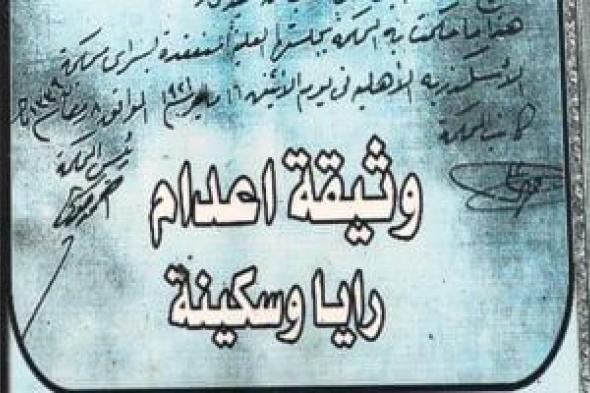 هذا ما حكمت به المحكمة بجلستها العلنية المنعقدة بسراى محكمة
الاسكندرية الأهلية فى يوم الاثنين ١٦ مايو ١٩٢١ الموافق ٨ رمضان ١٣٣٩
كاتب المحكمة
رئيس المحكمة
وثيقة اعدام
رايا وسكينة